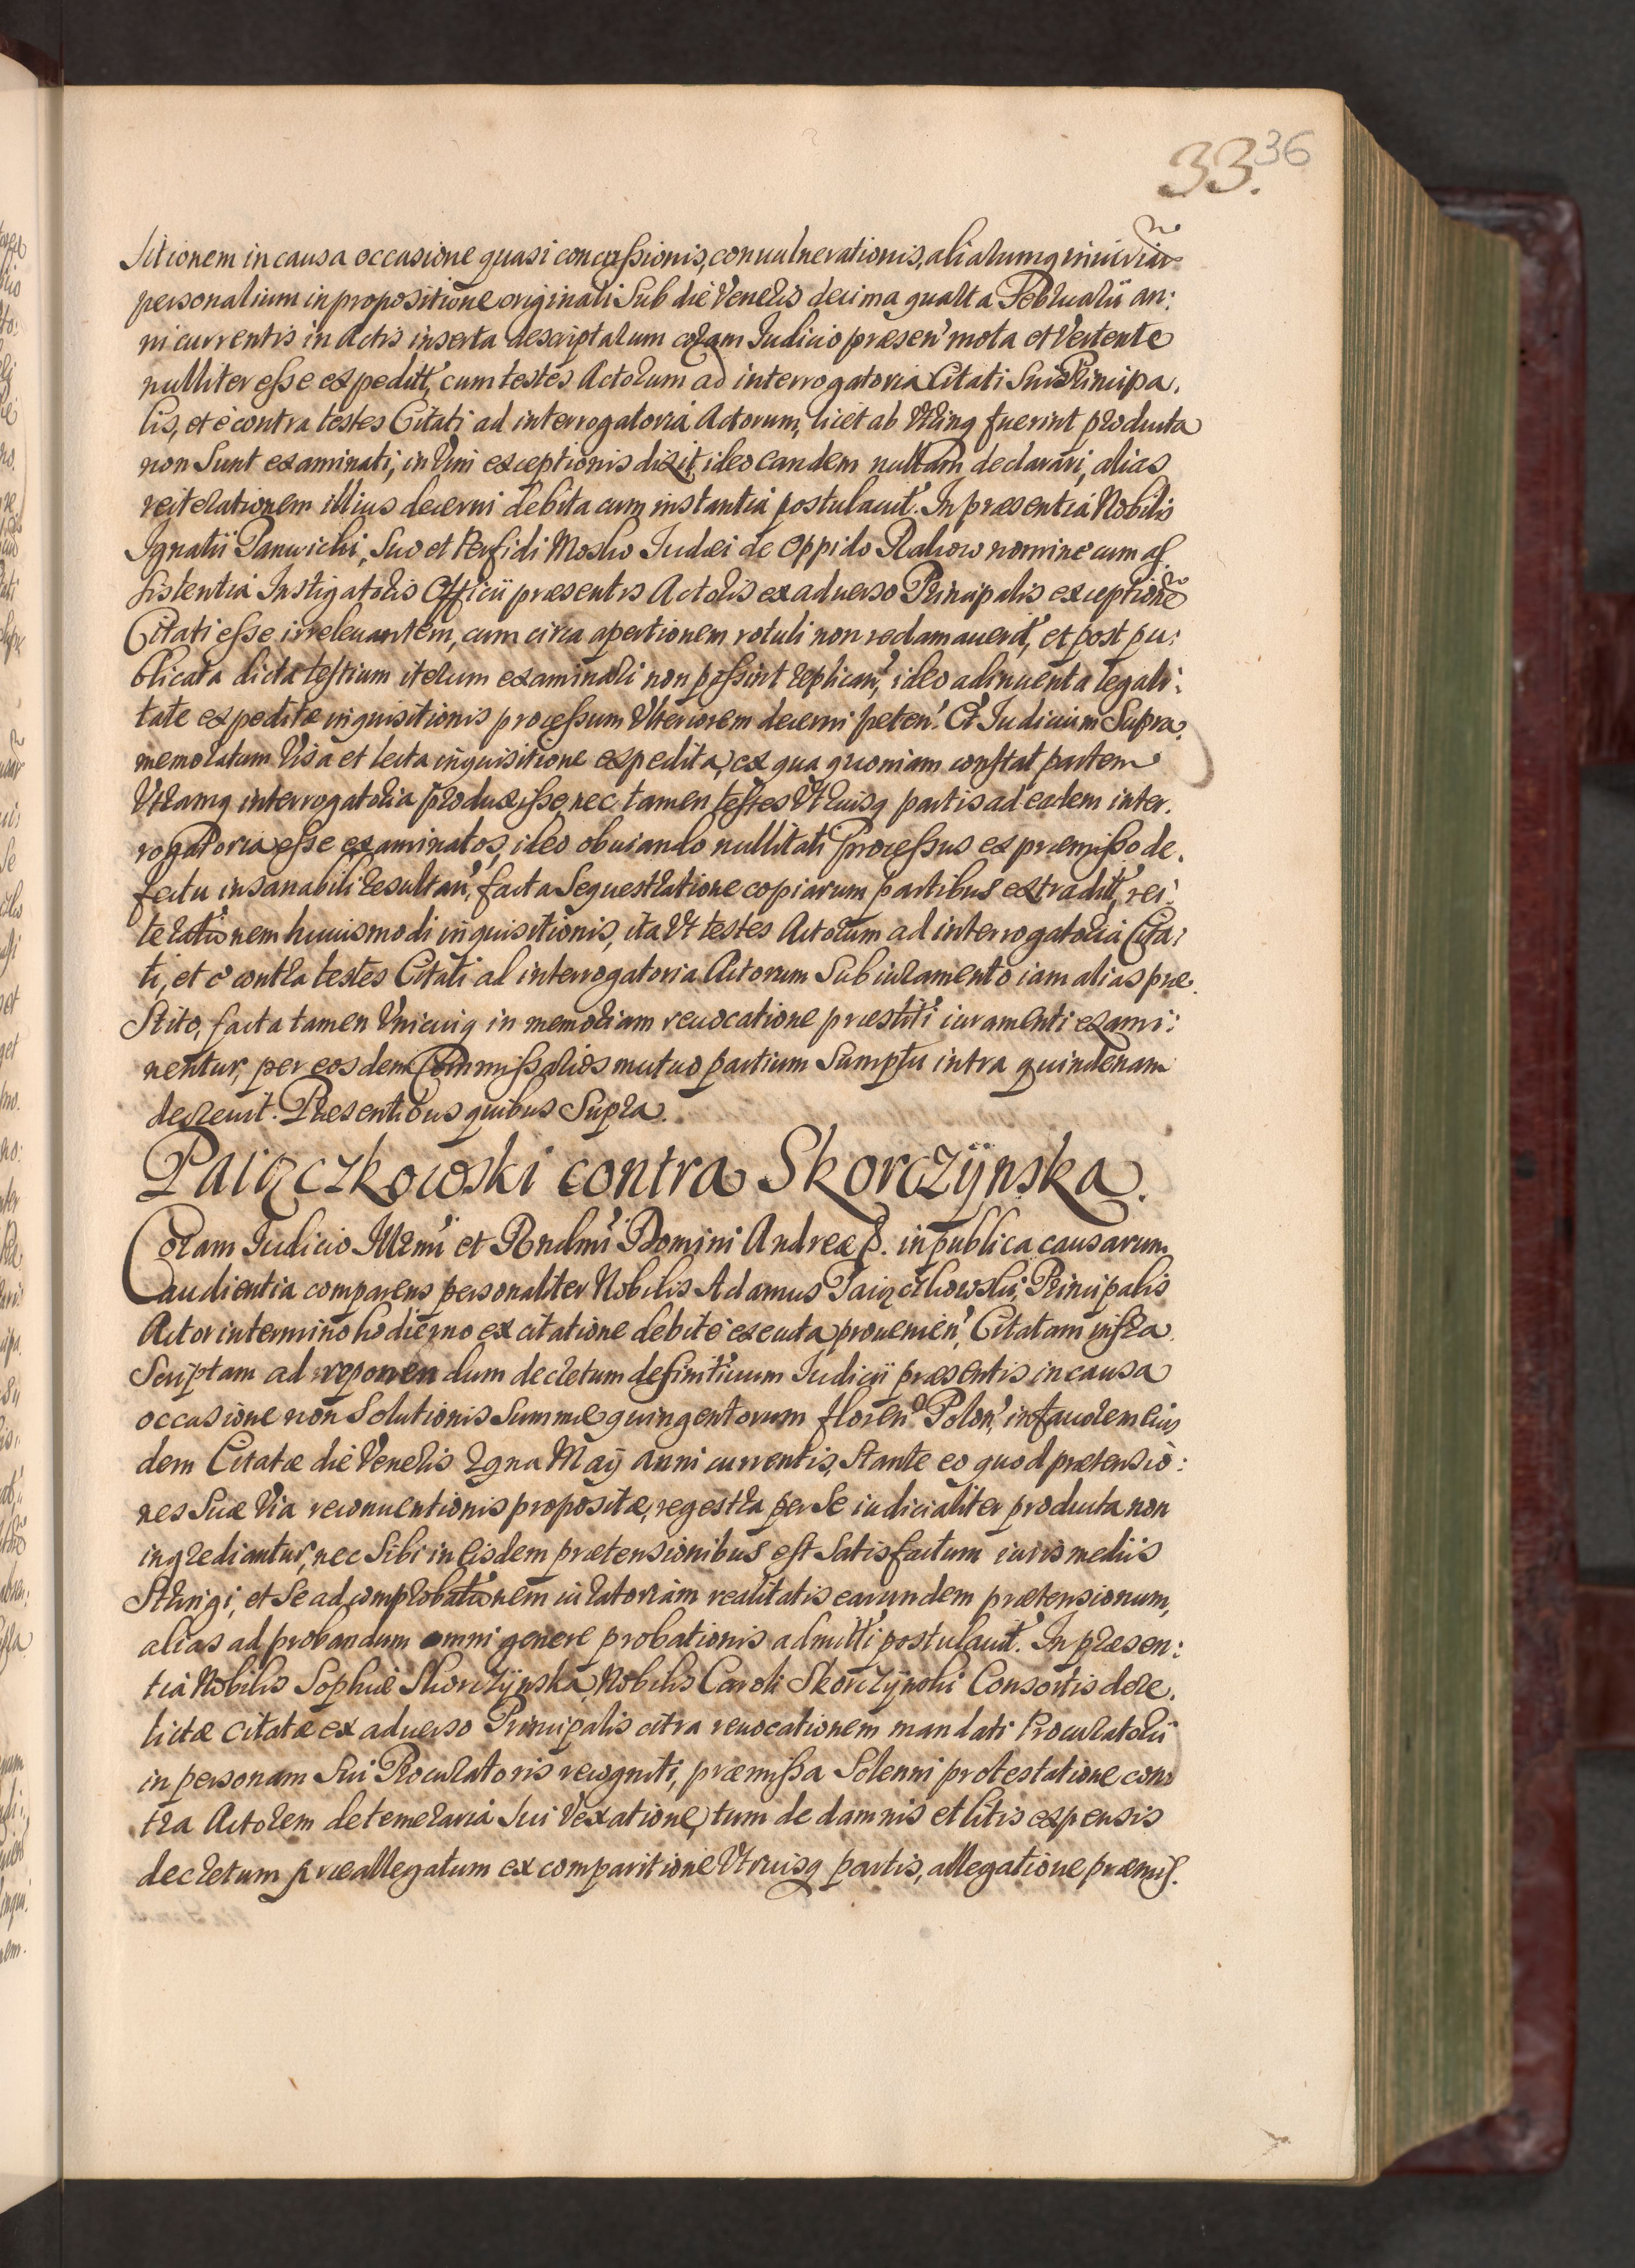 33. 36
sitionem in causa occasione quasi concussionis, convulnerationis, aliarumq iniuriar
personalium in propositione originali Sub die Veneris decima quarta Februarii an:
ni currentis in Actis inserta descriptarum coram Judicio præsen' mota et Vertente
nulliter esse expeditt', cum testes Actorum ad interrogatoria Citati Sui Principa,
lis, et è contra testes Citati ad interrogatoria Actorum, licet ab Utrinq fuerint producta
non Sunt examinati, in Vim exceptionis dixit, ideo eandem nullam declarari, alias
reiterationem illius decerni debita cum instantia postulavit. In præsentia Nobilis
Ignatii Panwichi, Suo et Perfidi Mosko Judæi de Oppido Rakow nomine cum as
sistentia Instigatoris Officii præsentis Actoris ex adverso Principalis exceptione
Citati esse irrelevantem, cum circa apertionem rotuli non reclamaverit, et post pu:
blicata dicta testium iterum examinari non possint replican', ideo adinventa legali:
tate expeditæ inquisitionis processum Ulteriorem decerni peten'. Et Judicium Supra
memoratum Visa et lecta inquisitione expedita, ex qua quoniam constat partem
Utramq interrogatoria produxisse, nec tamen testes Utriusq partis ad eadem inter,
rogatoria esse examinatos, ideo obviando nullitati Processus ex præmisso de,
fectu insanabili resultan', facta Sequestratione copiarum partibus extraditt', rei:
terationem huiusmodi inquisitionis, ita Ut testes Actorum ad interrogatoria Cita:
ti, et è contra testes Citati ad interrogatoria Actorum Sub iuramento iam alias præ
Stito, facta tamen Unicuiq in memoriam revocatione præstiti iuramenti exami:
nentur, per eosdem Commissarios mutuo partium Sumptu intra quindenam
decrevit. Præsentibus quibus Supra.
Paiączkowski contra Skorczÿnska.
Coram Judicio Illrmi et Rndmi Domini Andreæ P. in publica causarum
audientia comparens personaliter Nobilis Adamus Paiączkowski, Principalis
Actor in termino hodierno ex citatione debitè exeuta provenien', Citatam infra
Scriptam ad reponendum decretum definitivum Judicii præsentis in causa
occasione non Solutionis Summæ quingentorum floren' Polon', in favorem eius
dem Citatæ die Veneris 2gna Maÿ anni currentis, Stante eo quod prætensio:
nes Suæ Via reconventionis propositæ, regestra per Se iudicialiter producta non
ingrediantur, nec Sibi in eisdem prætensionibus est Satisfactum iuris mediis
Stringi, et Se ad comprobationem iuratoriam realitatis earundem prætensionum,
alias ad probandum omni genere probationis admitti postulavit. In præsen:
tia Nobilis Sophiæ Skorczÿnska, Nobilis Caroli Skorczÿnski Consortis dere,
lictæ citatæ ex adverso Principalis citra revocationem mandati Procuratorii
in personam Sui Procuratoris recogniti, præmissa Solenni protestatione con
tra Actorem de temeraria Sui Vexatione, tum de damnis et litis expensis
decretum præallegatum ex comparitione Utriusq partis, allegatione præmis.